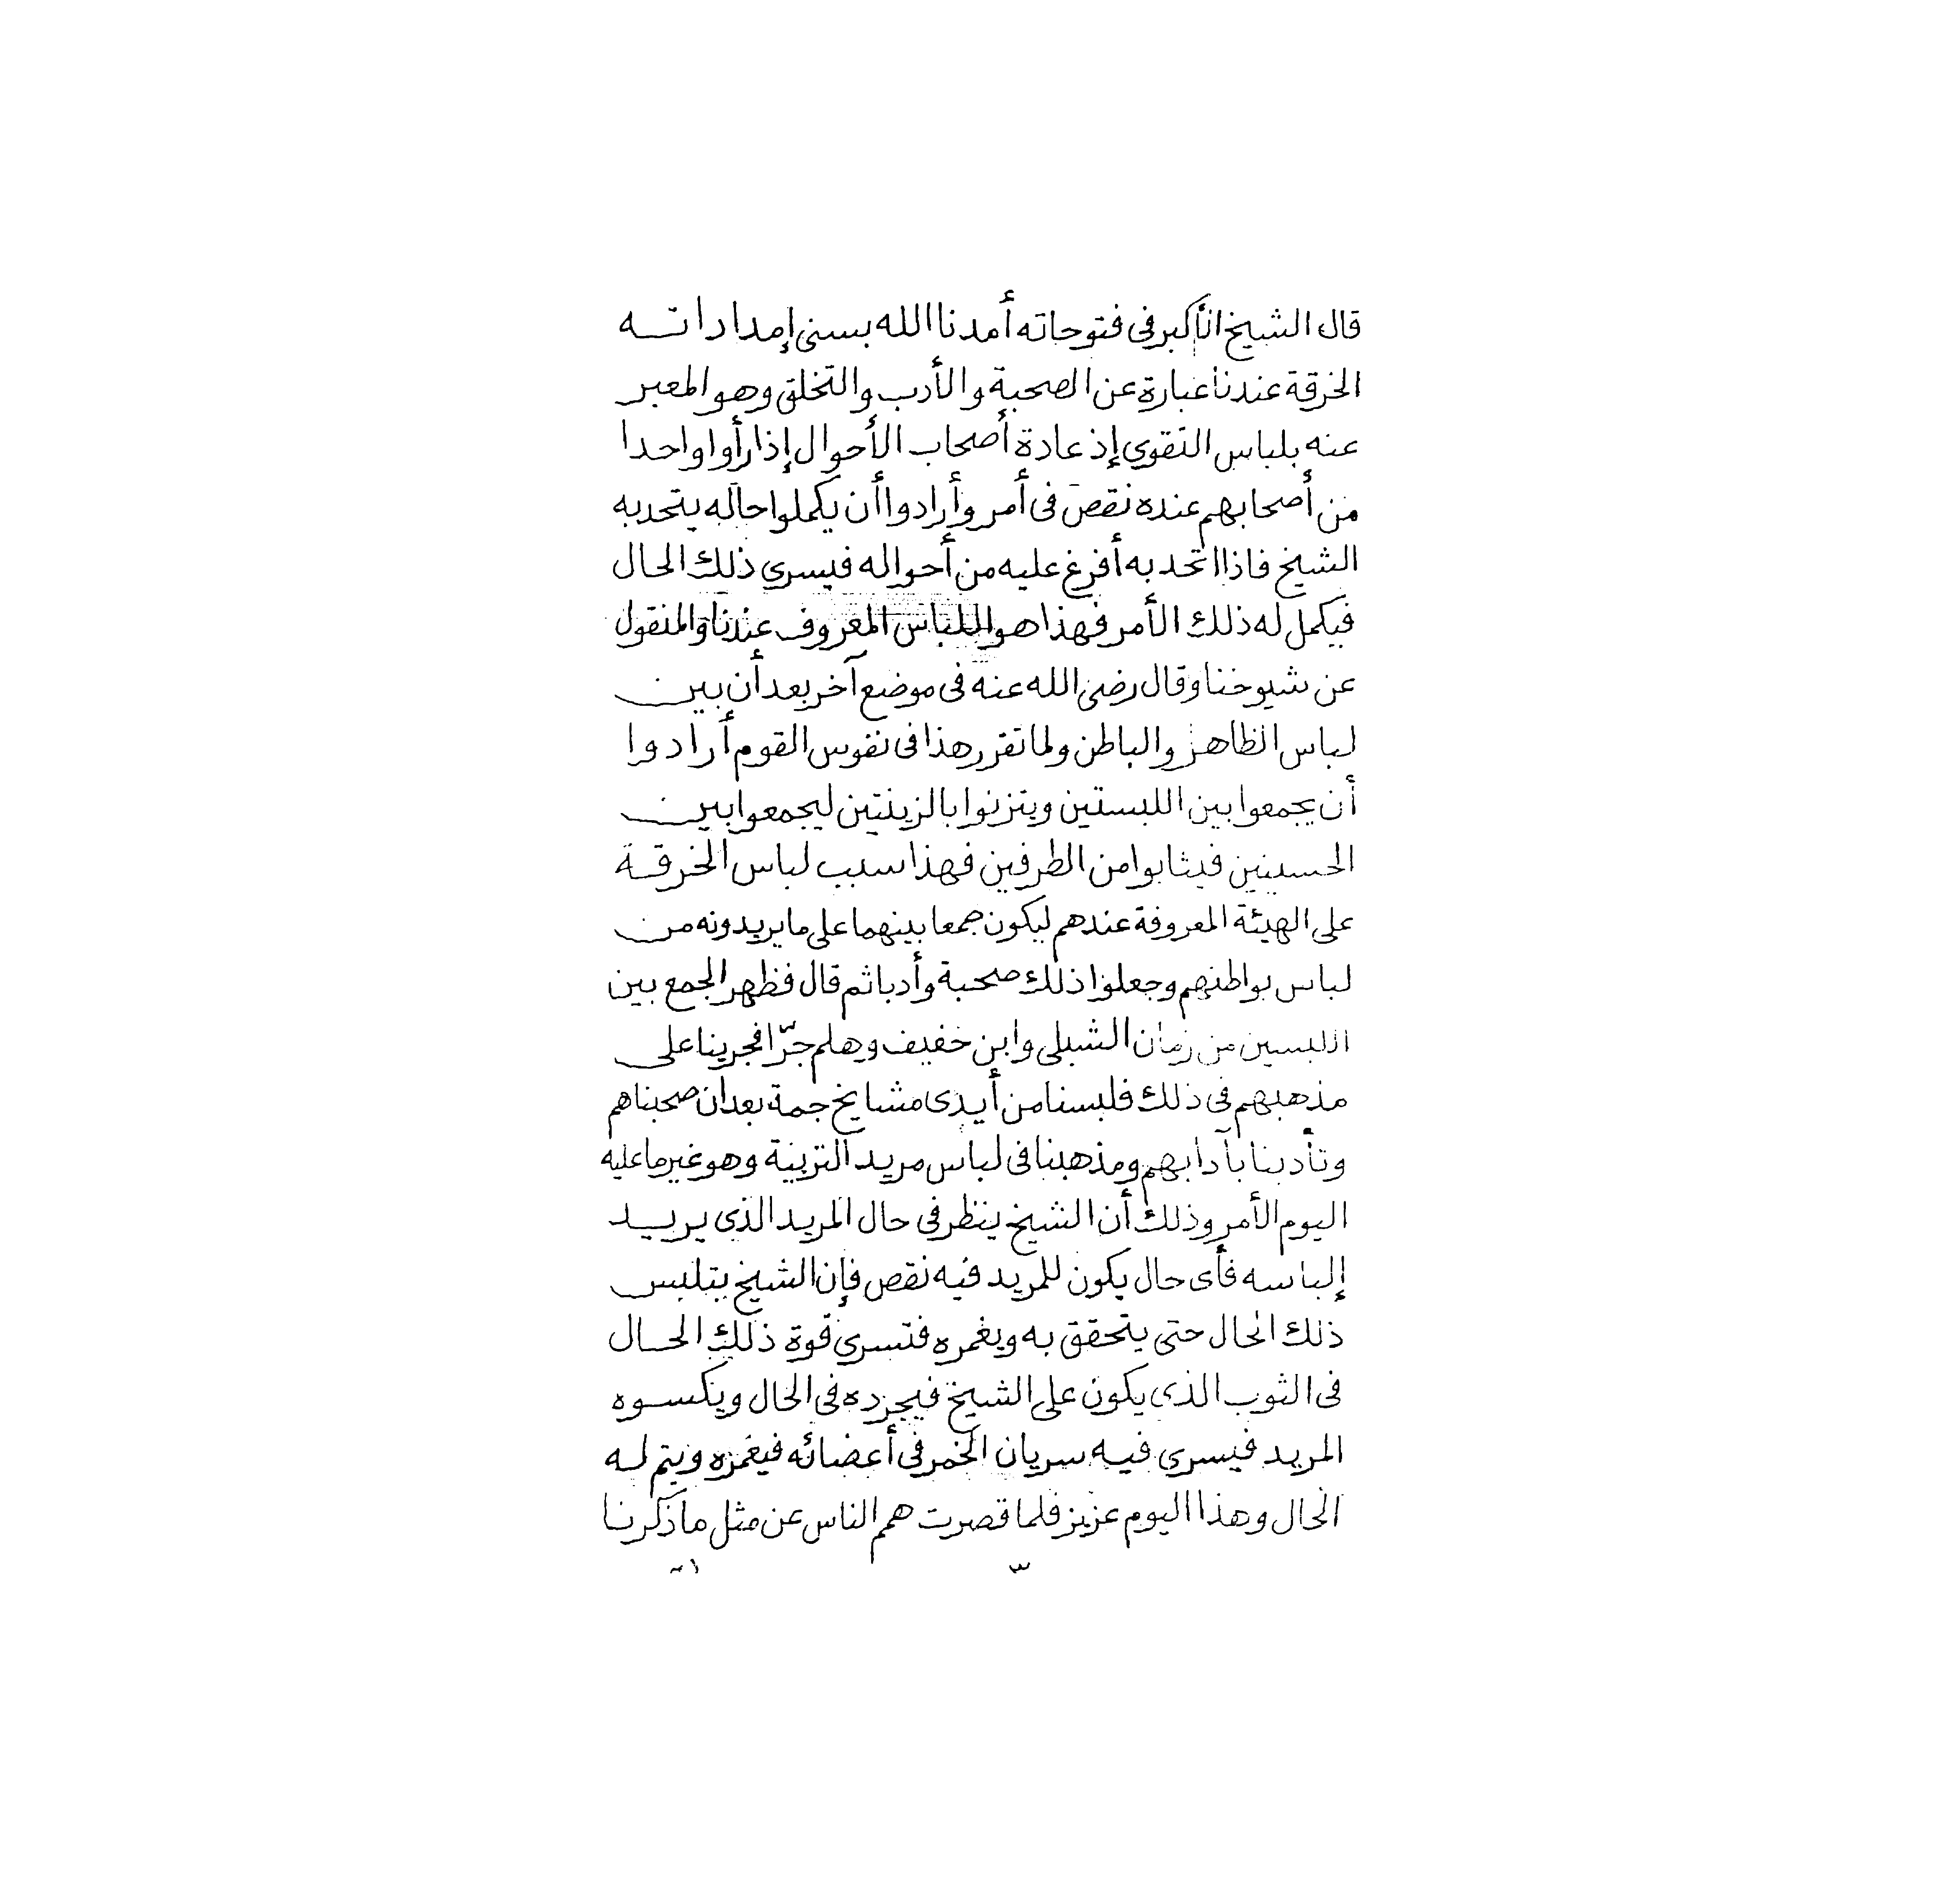 قال الشيخ الأكبر فى فتوحاته أمدنا الله بسنى إمداداته
الخرقة عندنا عبارة عن الصحبة والأدب والتخلق وهو المعبر
عنه بلباس التقوى إذ عادة أصحاب الأحوال إذا رأوا واحدا
من أصحابهم عنده نقص فى أمر وأرادوا أن يكملوا حاله يتحد به
الشيخ فاذا اتحد به أفرغ عليه من أحواله فيسرى ذلك الحال
فيكمل له ذلك الأمر فهذا هو اللباس المعروف عندنا والمنقول
عن شيوخنا وقال رضى الله عنه فى موضع آخر بعد أن بين
لباس الظاهر والباطن ولما تقرر هذا فى نفوس القوم أرادوا
أن يجمعوا بين اللبستين ويتزنوا بالزينتين ليجمعوا بين
الحسنيين فيثابوا من الطرفين فهذا سبب لباس الخرقة
على الهيئة المعروفة عندهم ليكون جمعا بينهما على ما يريدونه من
لباس بواطنهم وجعلوا ذلك صحبة وأدبا ثم قال فظهر الجمع بين
اللبسين من زمان الشبلى وابن خفيف وهلم جرّا فجرينا على
مذهبهم فى ذلك فلبسنا من أيدى مشايخ جمة بعد ان صحبناهم
وتأدبنا بآدابهم ومذهبنا فى لباس مريد التربية وهو غير ما عليه
اليوم الأمر وذلك أن الشيخ ينظر فى حال المريد الذى يريد
إلباسه فأى حال يكون للمريد فيه نقص فإن الشيخ يتلبس
ذلك الحال حتى يتحقق به ويغمره فتسرى قوة ذلك الحال
فى الثوب الذى يكون على الشيخ فيجرده فى الحال ويكسوه
المريد فيسرى فيه سريان الخمر فى أعضائه فيغمره ويتم له
الحال وهذا اليوم عزيز فلما قصرت همم الناس عن مثل ما ذكرنا